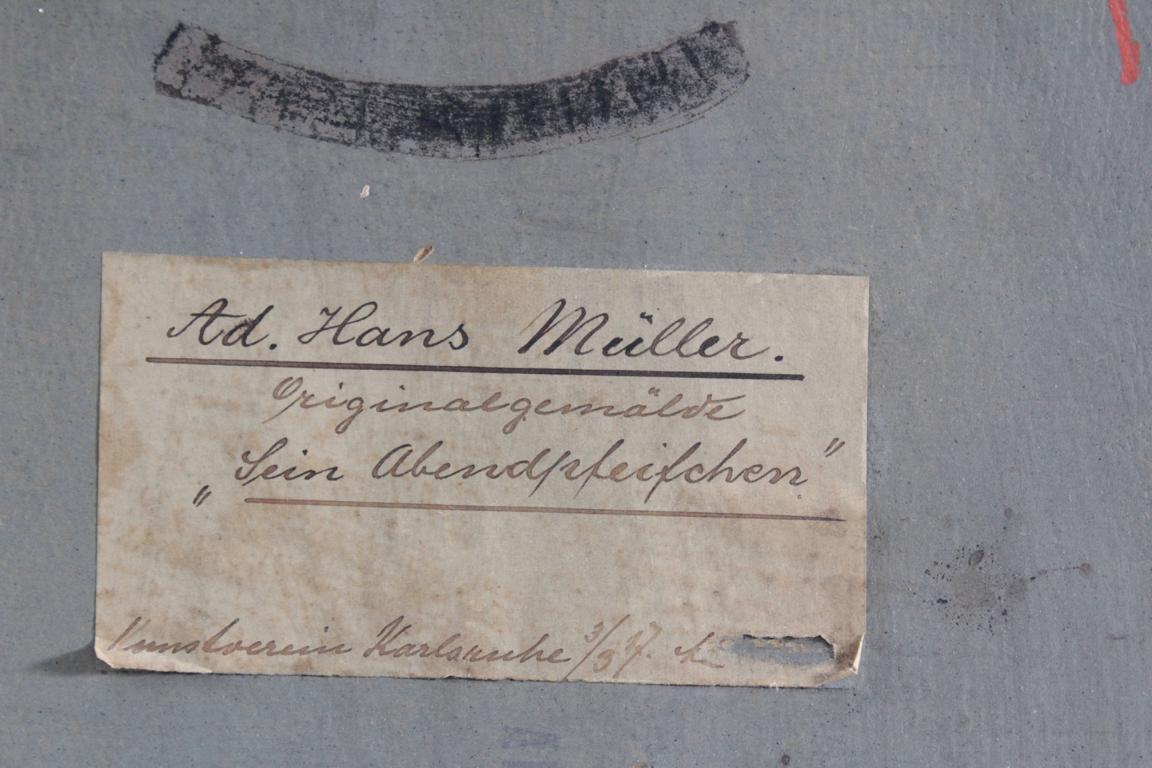 Ad. Hans Müller.
Originalgemälde
„Sein Abendpfeifchen"
Kunstverein Karlsruhe 3/37.